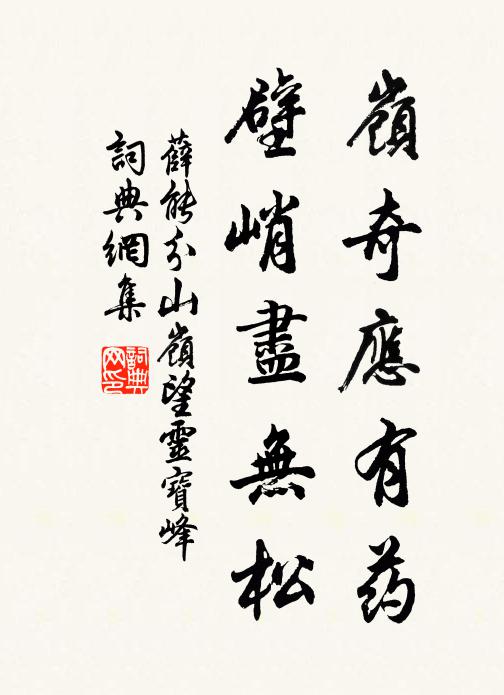 嶺奇應有药
壁峭盡無松
薛能分山嶺望靈寶峰
詞典網集
詞典
网印